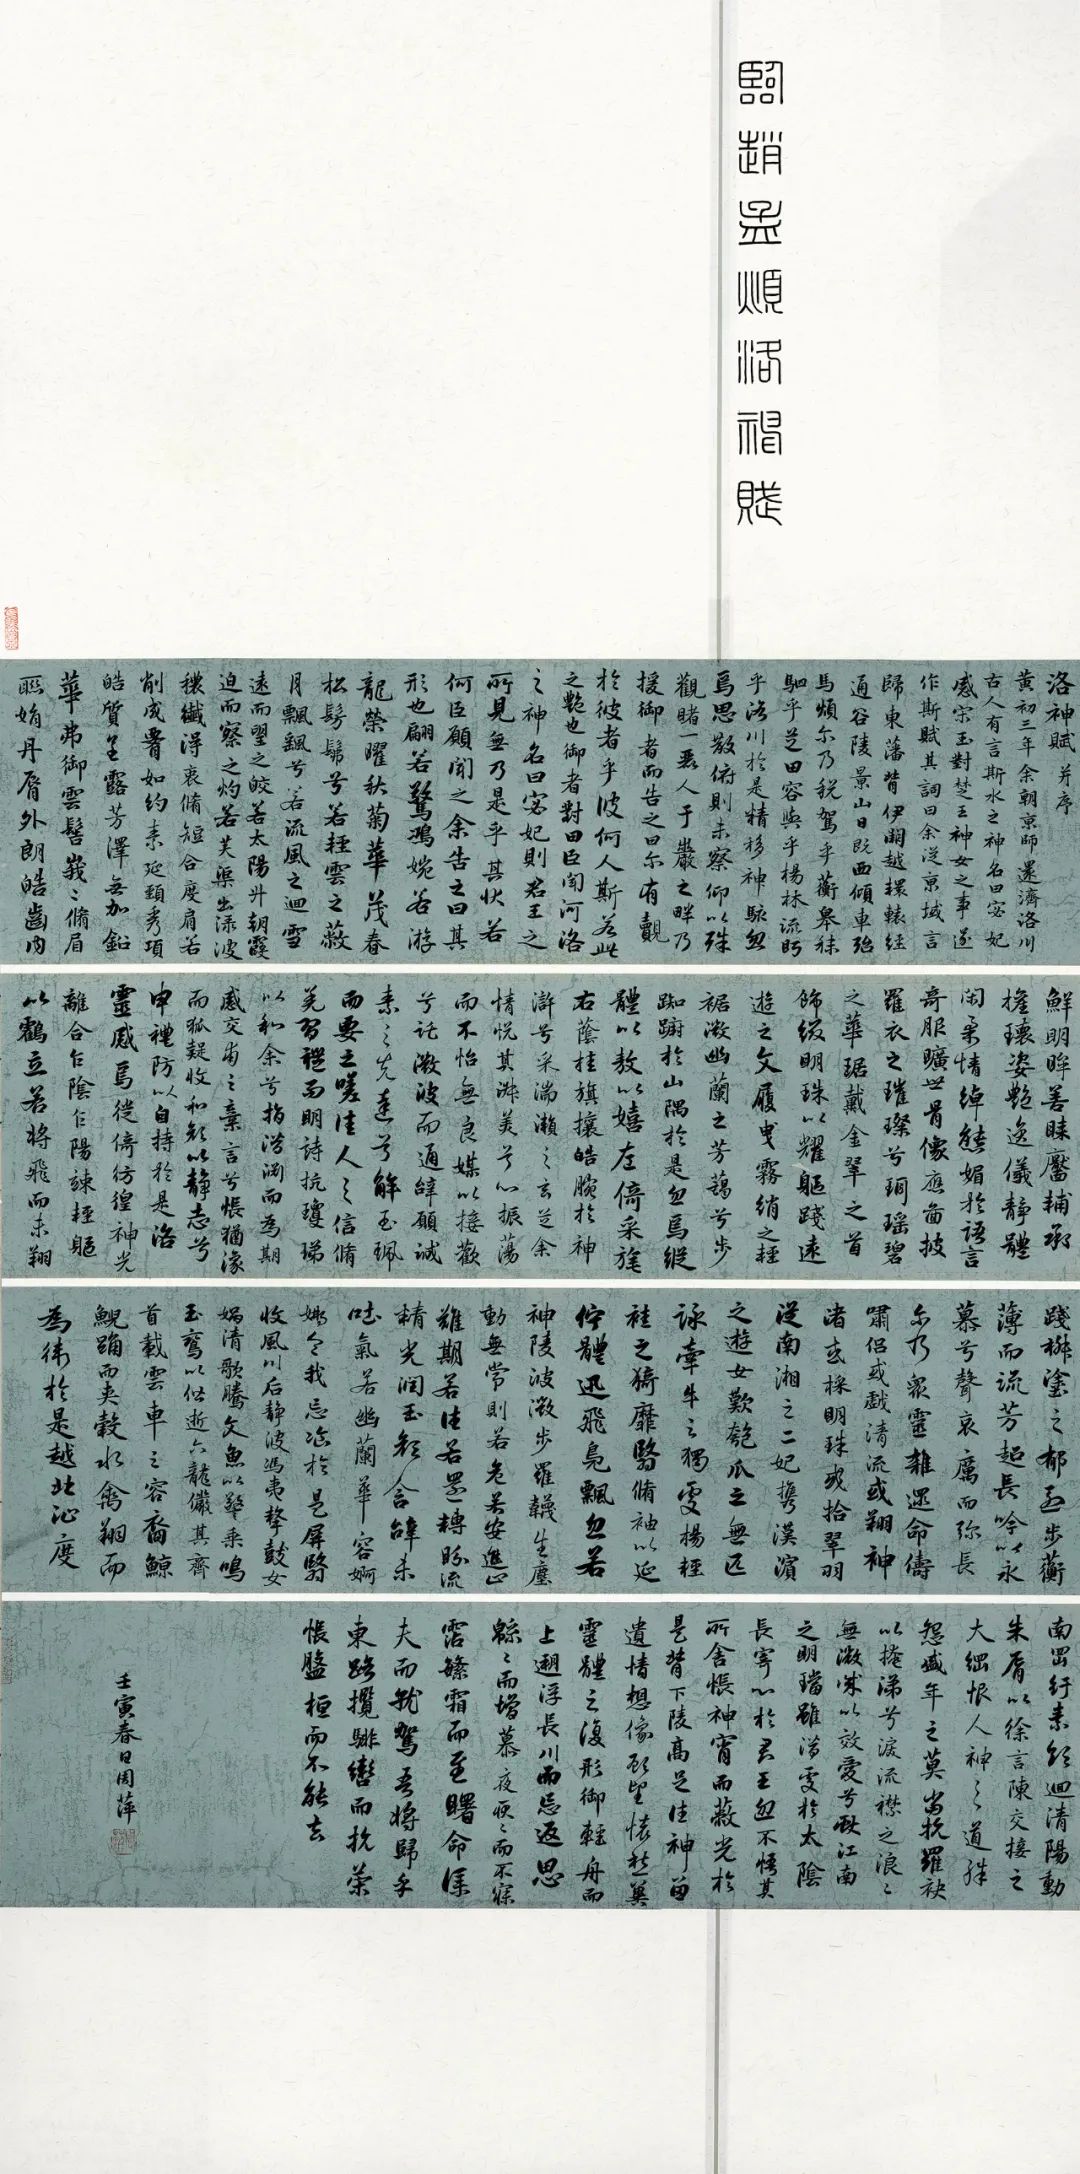 臨趙孟頫洛神賦
洛神賦 并序
黄初三年余朝京師還濟洛川
古人有言斯水之神名曰宓妃
感宋玉對楚王神女之事遂
作斯賦其詞曰余從京域言
歸東藩背伊闕越轘轅經
通谷陵景山日既西傾車殆
馬煩尔乃税駕乎蘅皋秣
駟乎芝田容與乎楊林流眄
乎洛川於是精移神駭忽
焉思散俯則未察仰以殊
觀睹一麗人于巖之畔乃
援御者而告之曰尔有覿
於彼者乎彼何人斯若此
之艷也御者對曰臣聞河洛
之神名曰宓妃則君王之
所見無乃是乎其状若
何臣願聞之余告之曰其
形也翩若驚鴻婉若游
龍榮曜秋菊華茂春
松髣髴兮若輕雲之蔽
月飄飖兮若流風之迴雪
遠而望之皎若太陽升朝霞
迫而察之灼若芙蕖出渌波
穠纖得衷脩短合度肩若
削成腰如約素延頸秀項
皓質呈露芳澤無加鉛
華弗御雲髻峩〻脩眉
聯娟丹脣外朗皓齒内
鮮明眸善睞靨輔承
權瓌姿艷逸儀靜體
閑柔情綽態媚於語言
奇服曠世骨像應圖披
羅衣之璀璨兮珥瑶碧
之華琚戴金翠之首
飾綴明珠以耀軀踐遠
遊之文履曳霧綃之輕
裾微幽蘭之芳藹兮步
踟躕於山隅於是忽焉縱
體以敖以嬉左倚采旄
右蔭桂旗攘皓腕於神
滸兮采湍瀨之玄芝余
情悦其淑美兮心振蕩
而不怡無良媒以接歡
兮託微波而通辭願誠
素之先達兮解玉珮
而要之嗟佳人之信脩
羌習禮而明詩抗瓊珶
以和余兮指潛淵而為期
感交甫之棄言兮悵猶豫
而狐疑收和顔以靜志兮
申禮防以自持於是洛
靈感焉徙倚彷徨神光
離合乍陰乍陽竦輕軀
以鶴立若將飛而未翔
踐椒塗之郁烈步蘅
薄而流芳超長吟以永
慕兮聲哀厲而弥長
尔乃衆靈雜遝命儔
嘯侣或戲清流或翔神
渚或採明珠或拾翠羽
從南湘之二妃攜漢濱
之遊女歎匏瓜之無匹
詠牽牛之獨處楊輕
袿之猗靡翳脩袖以延
佇體迅飛鳧飄忽若
神陵波微步羅韈生塵
動無常則若危若安進止
難期若往若還轉眄流
精光潤玉顔含辭未
吐氣若幽蘭華容婀
娜令我忘飡於是屏翳
收風川后靜波馮夷擊鼓女
媧清歌騰文魚以警乘鳴
玉鸞以偕逝六龍儼其齊
首載雲車之容裔鯨
鯢踊而夾轂水禽翔而
為衛於是越北沚度
南岡紆素領迴清陽動
朱脣以徐言陳交接之
大綱恨人神之道殊
怨盛年之莫當抗羅袂
以掩涕兮淚流襟之浪〻
無微誠以效愛兮獻江南
之明璫雖潛處於太陰
長寄心於君王忽不悟其
所舍悵神宵而蔽光於
是背下陵高足往神留
遺情想像顧望懷愁冀
靈體之復形御輕舟而
上遡浮長川而忘返思
緜〻而增慕夜耿〻而不寐
霑繁霜而至曙命僕
夫而就駕吾將歸乎
東路攬騑轡而抗策
悵盤桓而不能去
壬寅春日周萍